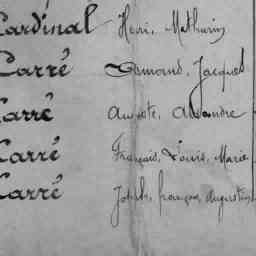 Cardinal Henri, Mathurin
Carré Edmond, Jacques
Carré Auguste, Alexandre
Carré François, Louis, Marie
Carré Joseph, françois, Augustin